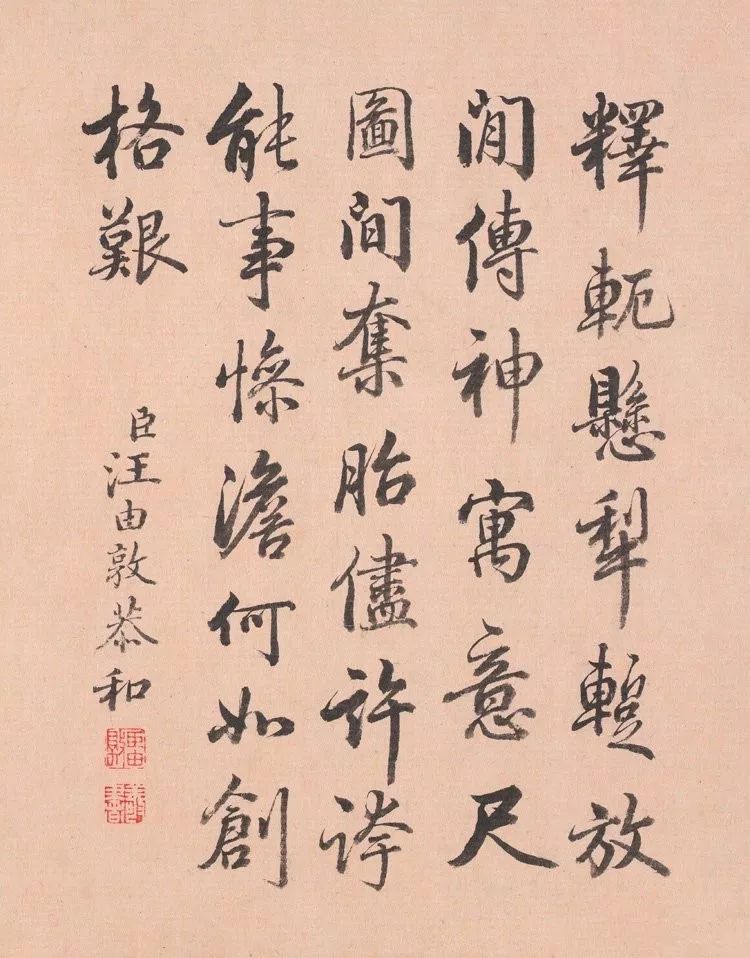 釋軛懸犁暫放
閒傳神寓意尺
圖間奪胎儘許誇
能事慘澹何如創
格艱
臣汪由敦恭和